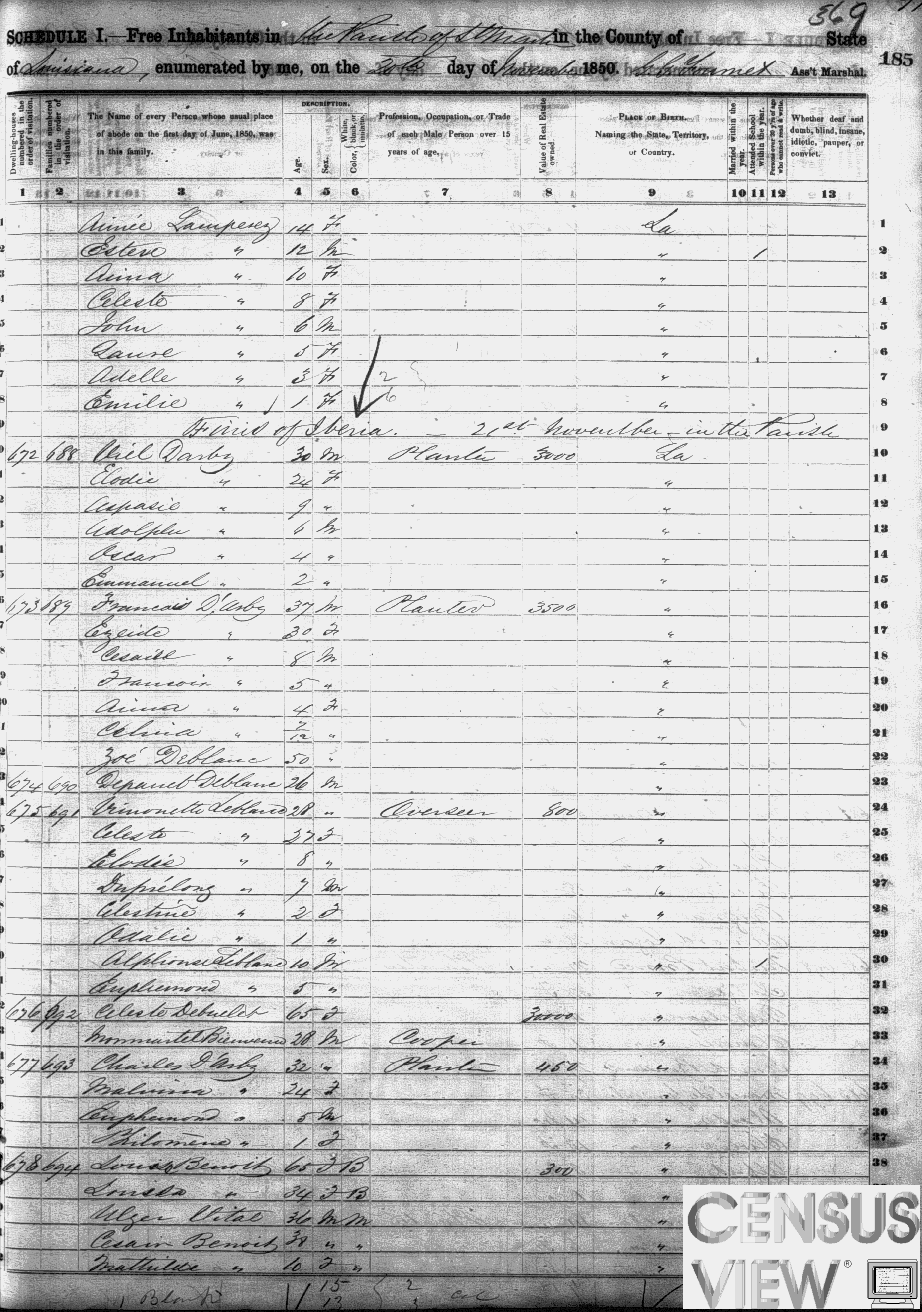 369
SCHEDULE I.—Free Inhabitants in the Parish of St Martin in the County of State
of Louisiana, enumerated by me, on the 20th day of November 1850. Ass't Marshal. 185
Dwelling-houses numbered in the order of visitation.
Families numbered in the order of visitation.
The Name of every Person whose usual place of abode on the first day of June, 1850, was in this family.
DESCRIPTION.
Age.
Sex.
Color, White, black, or mulatto.
Profession, Occupation, or Trade of each Male Person over 15 years of age.
Value of Real Estate owned.
PLACE OF BIRTH. Naming the State, Territory, or Country.
Married within the year.
Attended School within the year.
Persons over 20 y'rs of age who cannot read & write.
Whether deaf and dumb, blind, insane, idiotic, pauper, or convict.
1 2 3 4 5 6 7 8 9 10 11 12 13
Aimée Lamperez 14 F La 1
Esteve " 12 M " 1 2
Anna " 10 F " 3
Celeste " 8 F " 4
John " 6 M " 5
" 5 F " 6
Adelle " 3 F 2 " 7
Emilie " 1 F 6 " 8
of Iberia. — 21st November — in the Parish 9
672 688 Viel Darby 30 M Planter 3000 La 10
Elodie " 24 F " 11
Aspasie " 9 " " 12
Adolphe " 6 M " 13
Oscar " 4 " " 14
Emmanuel " 2 " " 15
673 689 Francois D'arby 37 M Planter 3500 " 16
" 30 F " 17
" 8 M " 18
Francois " 5 " " 19
Anna " 4 F " 20
" 7/12 " " 21
Zoé Deblanc 50 " 22
674 690 Deblanc 26 M " 23
675 691 Leblanc 28 " Overseer 800 " 24
Celeste " 27 F " 25
Elodie " 8 " " 26
" 7 M " 27
Celestine " 2 F " 28
Odalie " 1 " " 29
Alphonse Leblanc 10 M " 1 30
Euphemond " 5 " " 31
676 692 Celeste 65 F " 32
Bienvenu 28 M Cooper " 33
677 693 Charles D'arby 32 " Planter 450 " 34
Malvina " 24 F " 35
Euphemond " 5 M " 36
Philomene " 1 F " 37
678 694 Benoit 65 F B 300 " 38
" 34 F B "
Vital 36 M M "
Benoit 38 " " "
Mathilde " 10 F " "
15
CENSUS
VIEW®